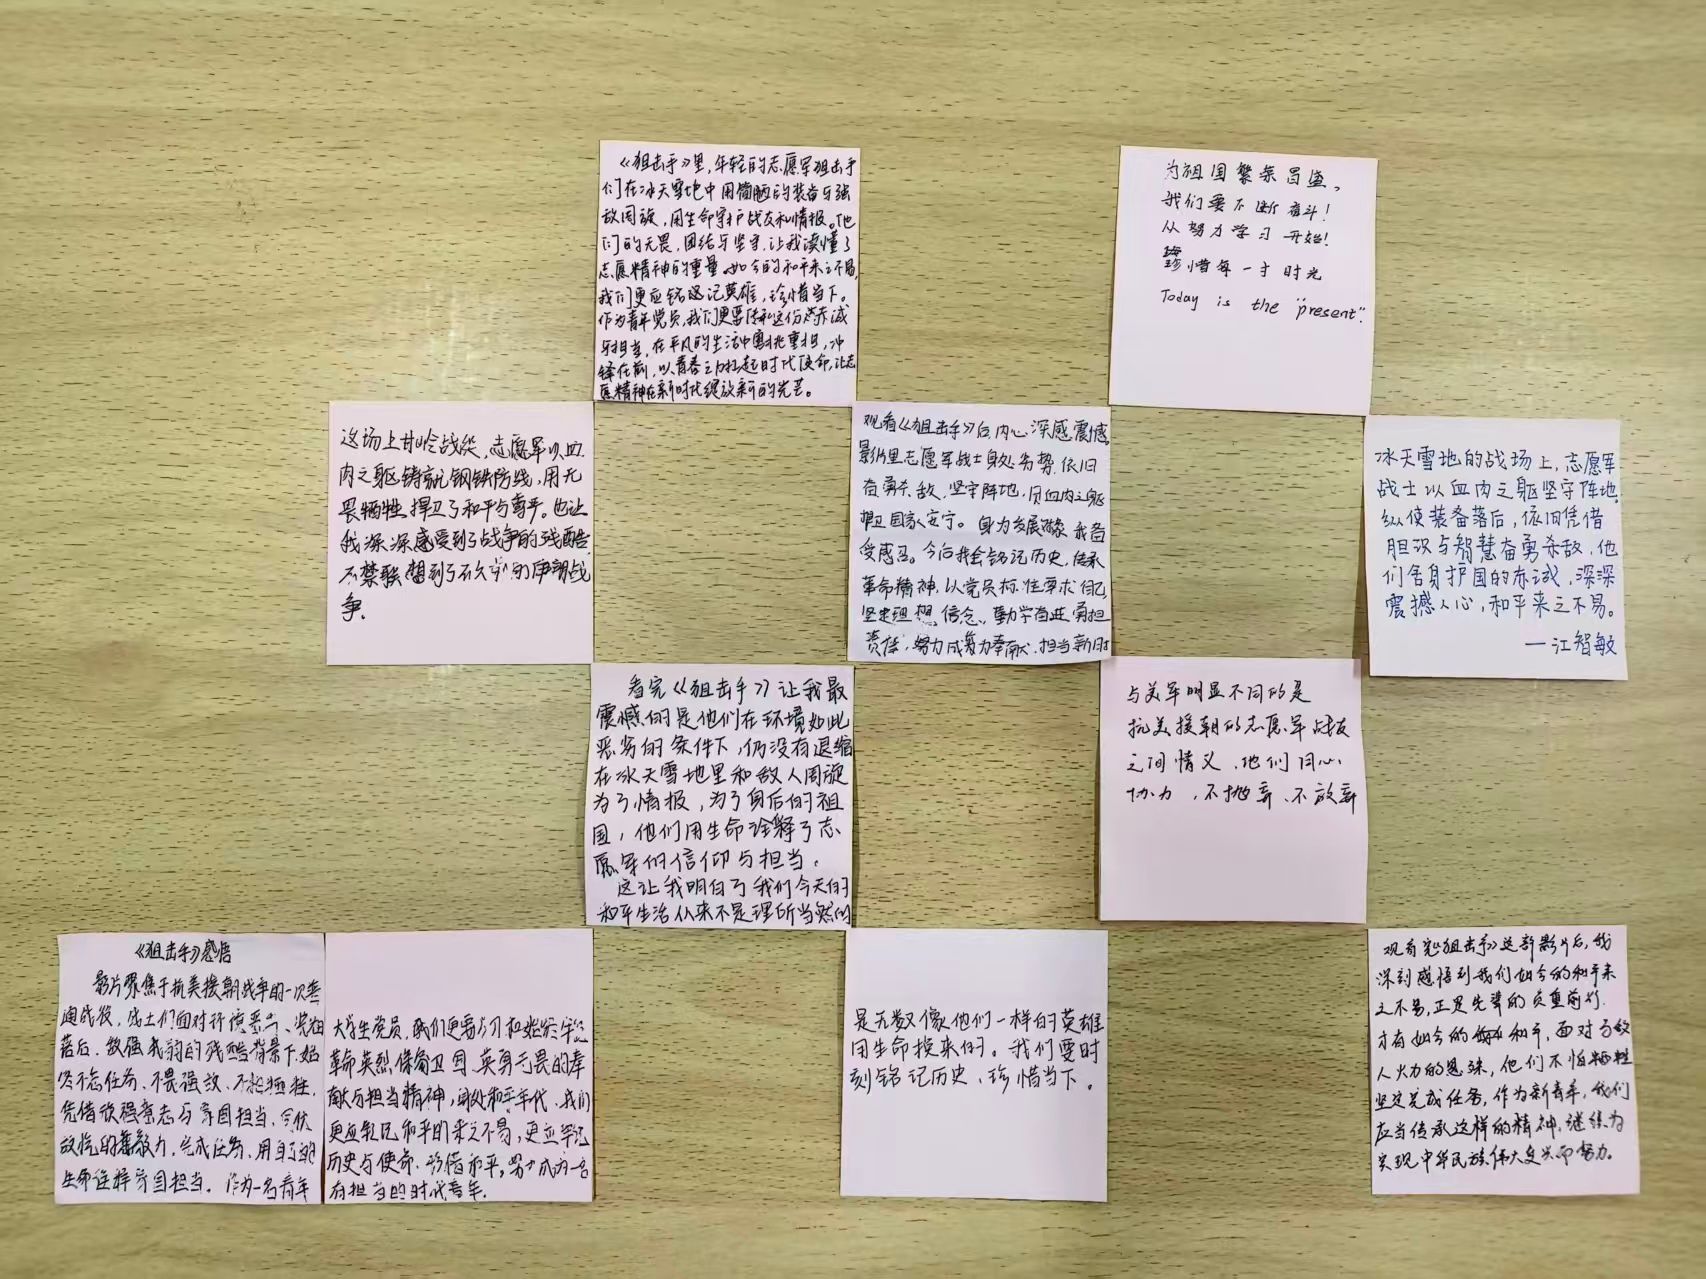 《狙击手》里，年轻的志愿军狙击手
们在冰天雪地中用简陋的装备与强
敌周旋，用生命守护战友和情报。他
们的无畏、团结与坚守，让我读懂了
志愿精神的重量。如今的和平来之不易，
我们更应铭记英雄，珍惜当下。
作为青年党员，我们更要传承这份赤诚
与担当，在平凡的生活中勇挑重担，冲
锋在前，以青春之力扛起时代使命，让志
愿精神在新时代绽放新的光芒。
为祖国繁荣昌盛，
我们要不断奋斗！
从努力学习开始！
珍惜每一寸时光
Today is the "present".
这场上甘岭战役，志愿军以血
肉之躯铸就钢铁防线，用无
畏牺牲捍卫了和平与尊严。也让
我深深感受到了战争的残酷，
不禁联想到了不久前的伊朗战
争。
观看《狙击手》后，内心深感震撼。
影片里志愿军战士身处劣势，依旧
奋勇杀敌、坚守阵地，凭血肉之躯
捍卫国家安宁。身为发展对象，我备
受感召。今后我会铭记历史，传承
革命精神，以党员标准要求自己，
坚定理想信念，勤学奋进勇担
责任，努力成为奉献、担当新时
冰天雪地的战场上，志愿军
战士以血肉之躯坚守阵地，
纵使装备落后，依旧凭借
胆识与智慧奋勇杀敌，他
们舍身护国的赤诚，深深
震撼人心，和平来之不易。
——江智敏
看完《狙击手》让我最
震撼的是他们在环境如此
恶劣的条件下，仍没有退缩
在冰天雪地里和敌人周旋
为了情报，为了身后的祖
国，他们用生命诠释了志
愿军的信仰与担当。
这让我明白了我们今天的
和平生活从来不是理所当然的
与美军明显不同的是
抗美援朝的志愿军战友
之间情义，他们同心
协力，不抛弃、不放弃
《狙击手》感悟
影片聚焦于抗美援朝战争的一次
战役，战士们面对环境恶劣、装备
落后、敌强我弱的残酷背景下，始
终不忘任务、不畏强敌、不怕牺牲，
凭借顽强意志与家国担当，
完成任务，用自己的
生命诠释家国担当。作为一名青年
大学生党员，我们更要学习和始终牢记
革命英烈保家卫国、英勇无畏的奉
献与担当精神，身处和平年代，我们
更应铭记和平的来之不易，更应牢记
历史与使命，珍惜和平，努力成为一名
有担当的时代青年。
是无数像他们一样的英雄
用生命换来的。我们要时
刻铭记历史、珍惜当下。
观看完《狙击手》这部影片后，我
深刻感悟到我们如今的和平来
之不易，正是先辈的负重前行
才有如今的和平，面对与敌
人火力的悬殊，他们不怕牺牲
坚定完成任务，作为新青年，我们
应当传承这样的精神，继续为
实现中华民族伟大复兴而努力。